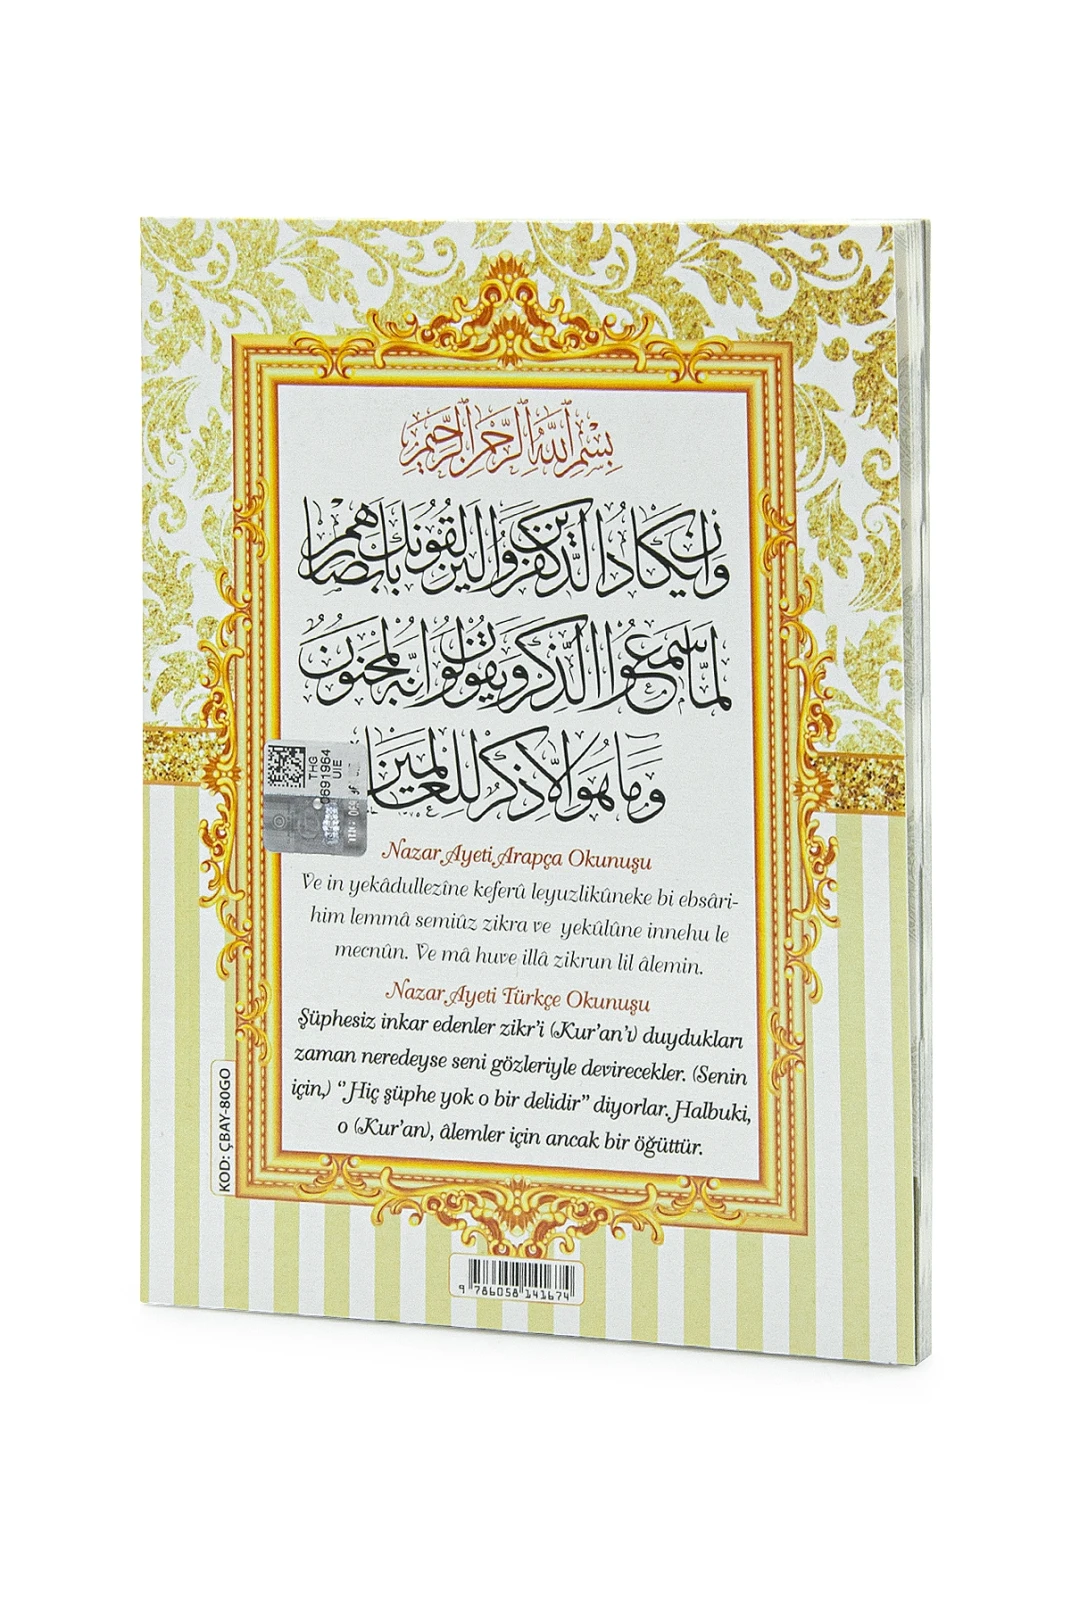 بِسْمِ اللّٰهِ الرَّحْمٰنِ الرَّحِيمِ
وَاِنْ يَكَادُ الَّذِينَ كَفَرُوا لَيُزْلِقُونَكَ بِاَبْصَارِهِمْ
لَمَّا سَمِعُوا الذِّكْرَ وَيَقُولُونَ اِنَّهُ لَمَجْنُونٌ
وَمَا هُوَ اِلَّا ذِكْرٌ لِلْعَالَمِينَ
THG
0691964
UIE
Nazar Ayeti Arapça Okunuşu
Ve in yekâdullezîne keferû leyuzlikûneke bi ebsâri-
him lemmâ semiûz zikra ve yekûlûne innehu le
mecnûn. Ve mâ huve illâ zikrun lil âlemin.
Nazar Ayeti Türkçe Okunuşu
Şüphesiz inkar edenler zikr'i (Kur'an'ı) duydukları
zaman neredeyse seni gözleriyle devirecekler. (Senin
için,) "Hiç şüphe yok o bir delidir" diyorlar. Halbuki,
o (Kur'an), âlemler için ancak bir öğüttür.
KOD: ÇBAY-80GO
9 786058 141674